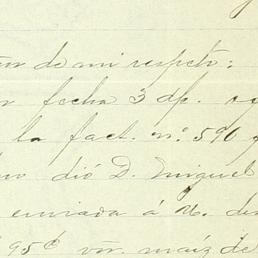 de mi respeto:
fecha 3 dp.
la fact. nº 590
dió D. Miguel
enviada á U.
95¢ vn. maíz de